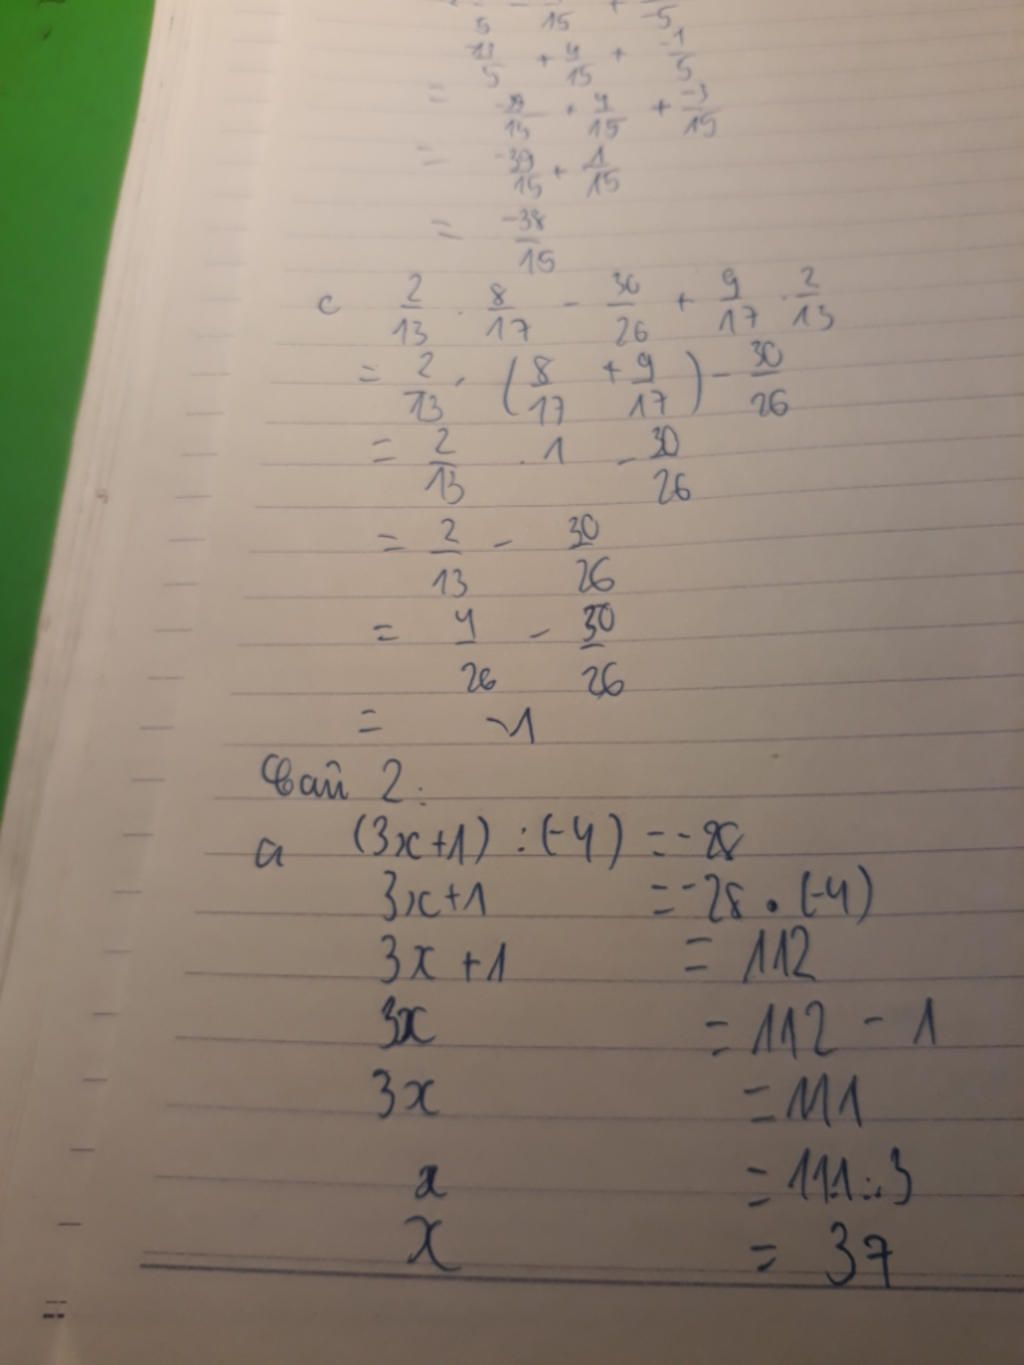 = -13/5 + 4/15 + -1/5
= -39/15 + 4/15 + -3/15
= -39/15 + 1/15
= -38/15
c 2/13 . 8/17 - 30/26 + 9/17 . 2/13
= 2/13 . (8/17 + 9/17) - 30/26
= 2/13 . 1 - 30/26
= 2/13 - 30/26
= 4/26 - 30/26
= -1
Bài 2:
a (3x+1) : (-4) = -28
3x+1 = -28 . (-4)
3x+1 = 112
3x = 112 - 1
3x = 111
x = 111 : 3
x = 37